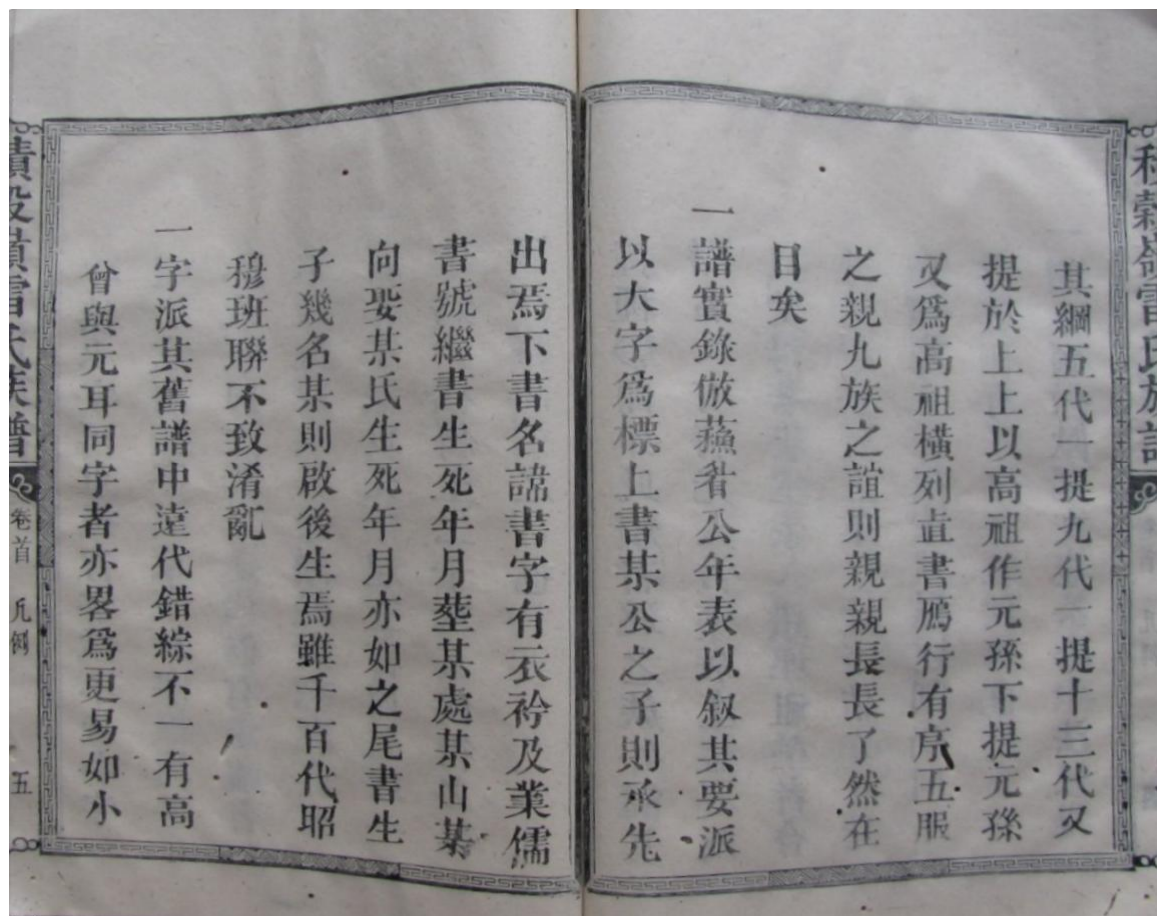 其綱五代一提九代一提十三代又
提於上上以高祖作元孫下提元孫
又爲高祖橫列直書鴈行有序五服
之親九族之誼則親親長長了然在
目矣
一譜實錄倣蘓眷公年表以叙其要派
以大字爲標上書某公之子則承先
出焉下書名諱書字有衣衿及業儒
書號繼書生死年月塟某處某山某
向娶某氏生死年月亦如之尾書生
子幾名某則啟後生焉雖千百代昭
穆班聯不致淆亂
一字派其舊譜中遠代錯綜不一有高
曾與元耳同字者亦畧爲更易如小
氏族譜
卷首 凡例
五